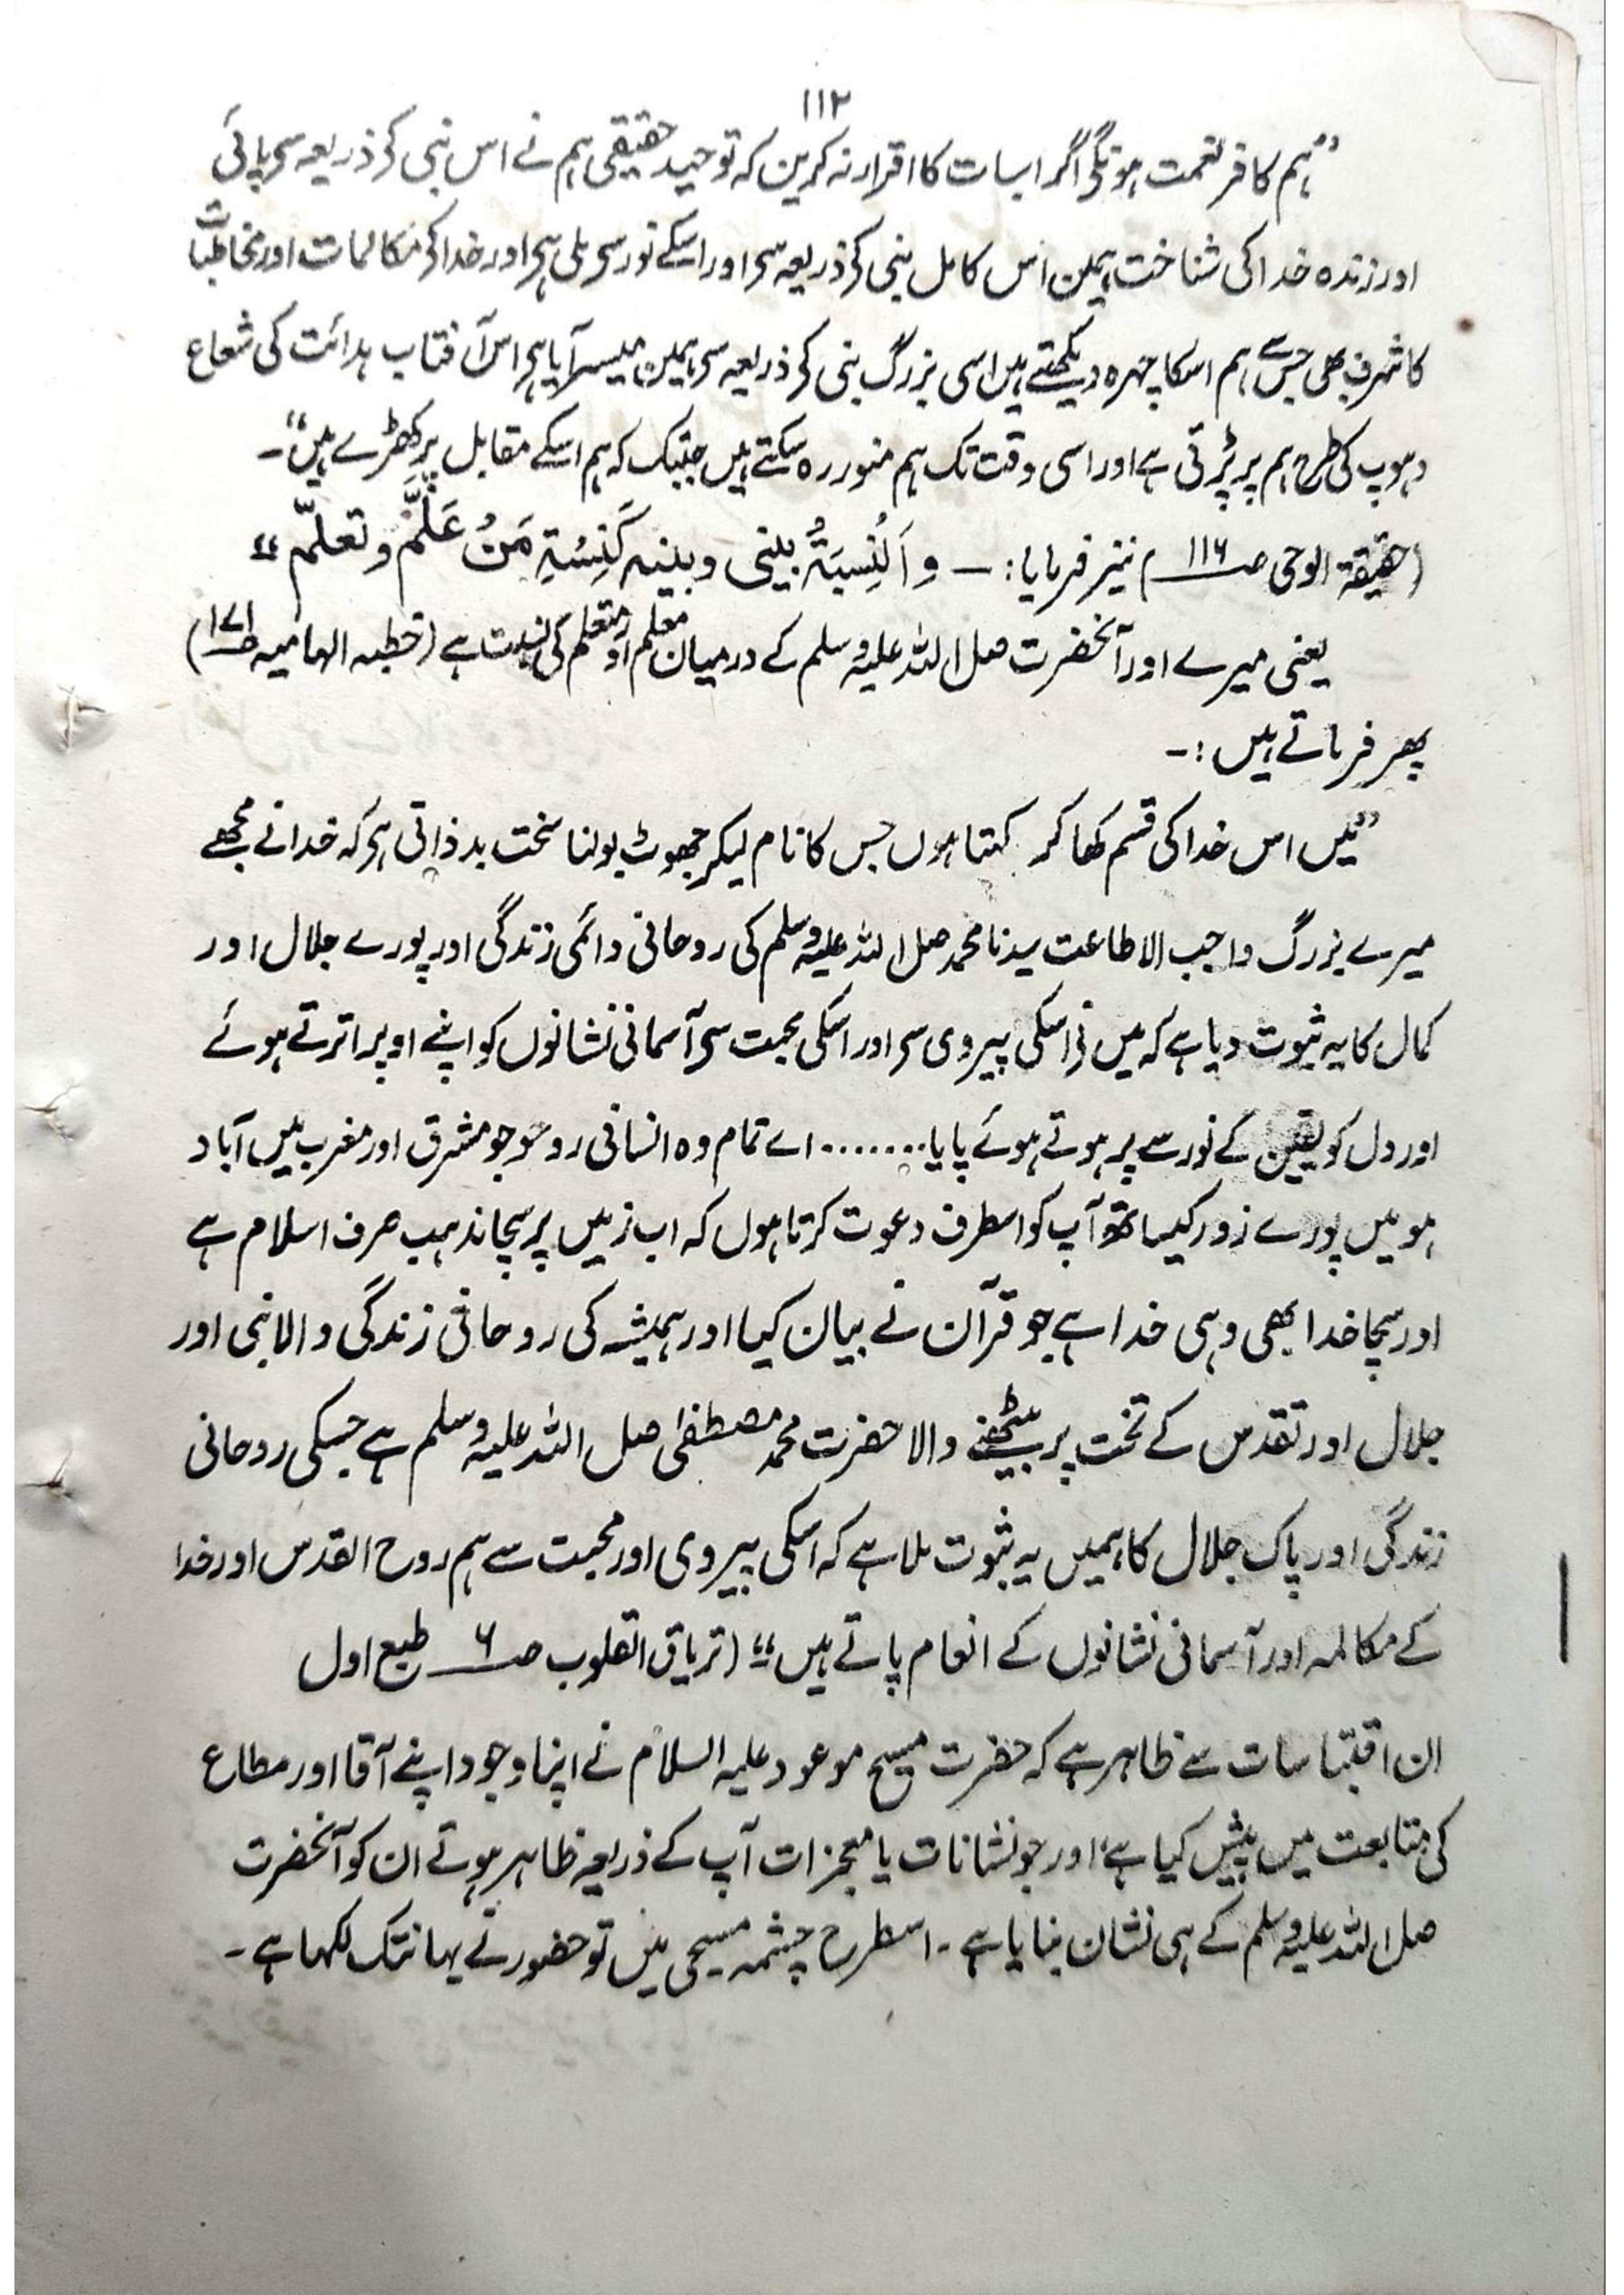 ۱۱۲
”ہم کافر نعمت ہونگے اگر اسبات کا اقرار نہ کریں کہ توحید حقیقی ہم نے اس نبی کے ذریعہ سے پائی
اور زندہ خدا کی شناخت ہمیں اس کامل نبی کے ذریعہ سے اور اسکے نور سے ملی ہے اور خدا کے مکالمات اور مخاطبات
کا شرف بھی جس سے ہم اسکا چہرہ دیکھتے ہیں اسی بزرگ نبی کے ذریعہ سے ہمیں میسر آیا ہے اس آفتاب ہدائت کی شعاع
دہوپ کی طرح ہم پر پڑتی ہے اور اسی وقت تک ہم منور رہ سکتے ہیں جبتک کہ ہم اسکے مقابل پر کھڑے ہیں“۔
(حقیقۃ الوحی صـ ۱۱۶) نیز فرمایا: ـ و اَلنِّسبَۃُ بینی و بینہ کَنِسْبَۃِ مَنْ عَلَّمَ و تعلّم“
یعنی میرے اور آنحضرت صل اللہ علیہ وسلم کے درمیان معلم اور متعلم کی نسبت ہے (خطبہ الہامیہ صـ ۱۷۱)
پھر فرماتے ہیں :۔
”میں اس خدا کی قسم کھا کر کہتا ہوں جس کا نام لیکر جھوٹ بولنا سخت بدذاتی ہے کہ خدا نے مجھے
میرے بزرگ واجب الاطاعت سیدنا محمد صل اللہ علیہ وسلم کی روحانی دائمی زندگی اور پورے جلال اور
کمال کا یہ ثبوت دیا ہے کہ میں نے اسکی پیروی سے اور اسکی محبت سے آسمانی نشانوں کو اپنے اوپر اترتے ہوئے
اور دل کو یقین کے نور سے پر ہوتے ہوئے پایا........ اے تمام وہ انسانی روحو جو مشرق اور مغرب میں آباد
ہو میں پورے زور کیساتھ آپ کو اسطرف دعوت کرتا ہوں کہ اب زمیں پر سچا مذہب صرف اسلام ہے
اور سچا خدا بھی وہی خدا ہے جو قرآن نے بیان کیا اور ہمیشہ کی روحانی زندگی والا نبی اور
جلال اور تقدس کے تخت پر بیٹھنے والا حضرت محمد مصطفیٰ صل اللہ علیہ وسلم ہے جسکی روحانی
زندگی اور پاک جلال کا ہمیں یہ ثبوت ملا ہے کہ اسکی پیروی اور محبت سے ہم روح القدس اور خدا
کے مکالمہ اور آسمانی نشانوں کے انعام پاتے ہیں“ (تریاق القلوب صـ ۶ طبع اول
ان اقتباسات سے ظاہر ہے کہ حضرت مسیح موعود علیہ السلام نے اپنا وجود اپنے آقا اور مطاع
کی متابعت میں پیش کیا ہے، اور جو نشانات یا معجزات آپ کے ذریعہ ظاہر ہوتے ان کو آنحضرت
صل اللہ علیہ وسلم کے ہی نشان بتایا ہے ۔ اسطرح چشمہ مسیحی میں تو حضور نے یہانتک لکھا ہے ۔